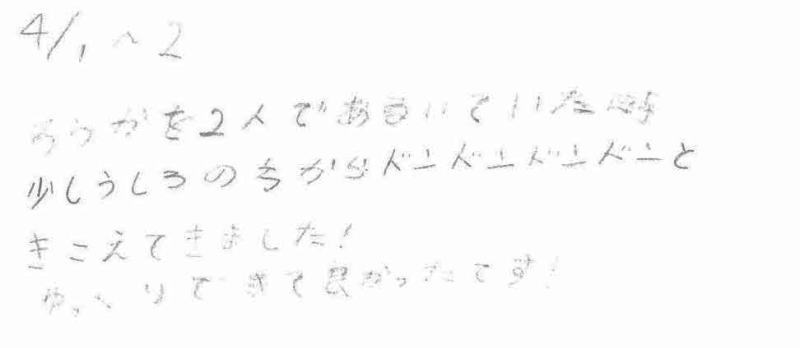 4/1〜2
ろうかを2人であるいていた時
少しうしろの方からドンドンドンドンと
きこえてきました!
ゆっくりできて良かったです!